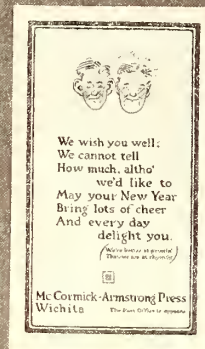 We wish you well;
We cannot tell
How much, altho'
we'd like to
May your New Year
Bring lots of cheer
And every day
delight you.
(We're better at printin'
Than we are at rhymin')
Mc Cormick-Armstrong Press
Wichita
The Post Office is opposite